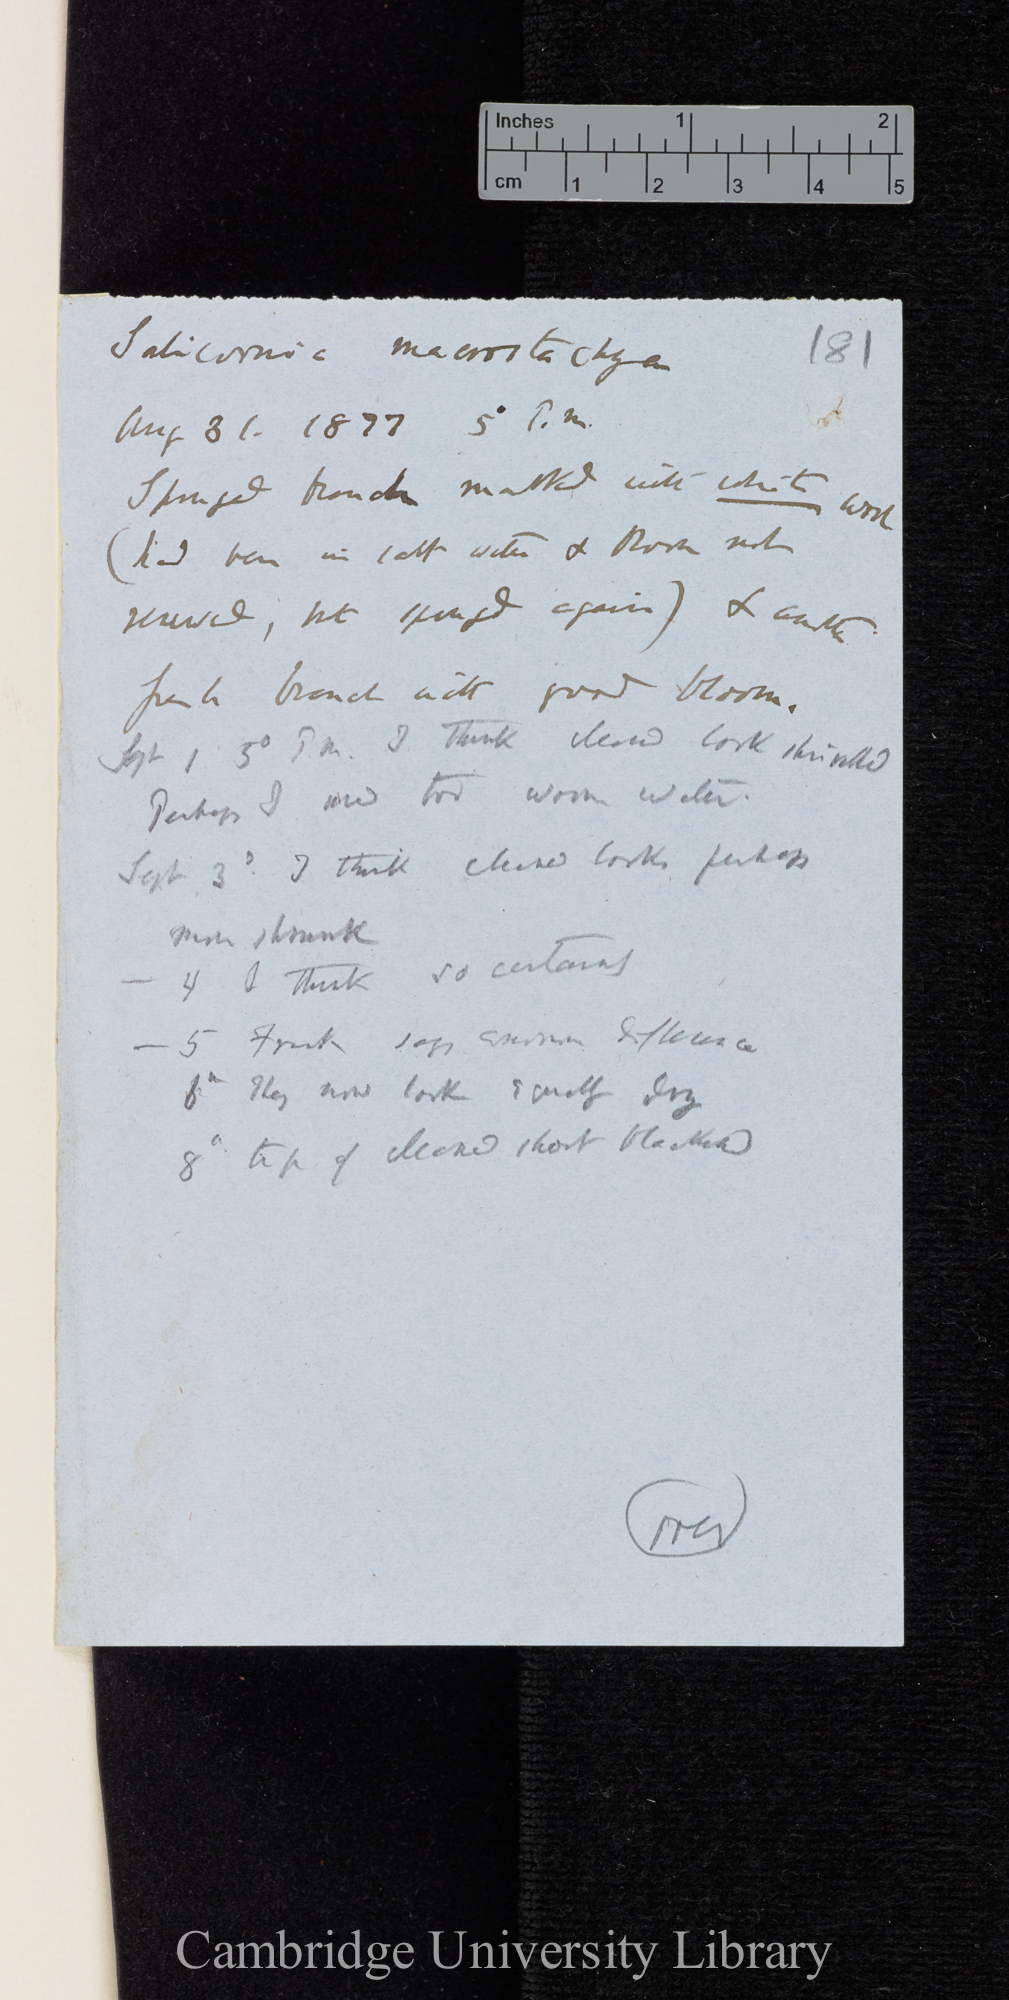 Inches 1 2
cm 1 2 3 4 5
181
Salicornia macrostachya
Aug 31. 1877 5° P.m.
Sponged branch marked with white wool
(had been in salt water & Bloom not
renewed, but sponged again) & another
fresh branch with good bloom.
Sept 1 5° P.m. I think cleaned look shrinked
Perhaps I used too warm water.
Sept 3° I think cleaned looks perhaps
more shrunk
— 4 I think so certainly
— 5 Frank says difference
6° they now look equally dry
8° tip of cleaned shoot blackened
Cambridge University Library